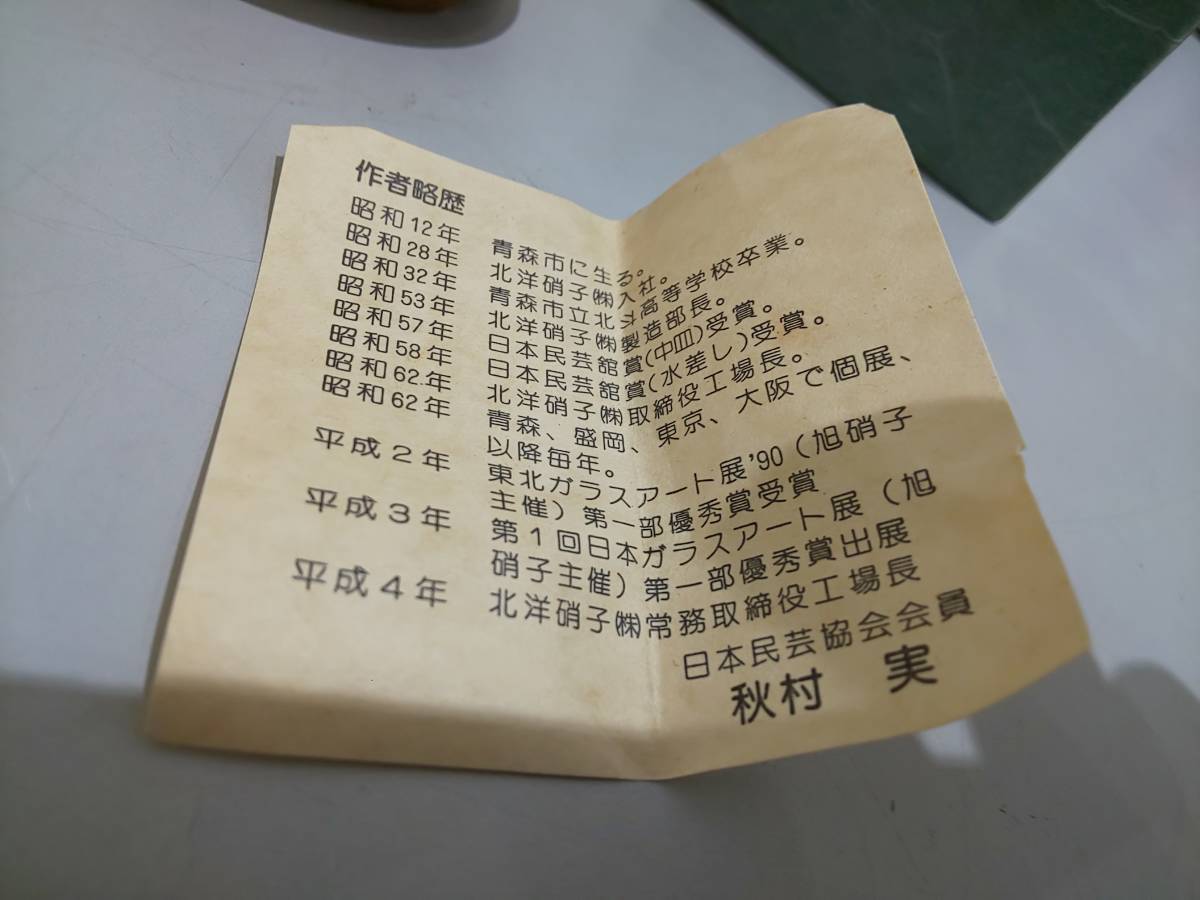 作者略歴
昭和12年 青森市に生る。
昭和28年 北洋硝子㈱入社。
昭和32年 青森市立北斗高等学校卒業。
昭和53年 北洋硝子㈱製造部長。
昭和57年 日本民芸館賞(中皿)受賞。
昭和58年 日本民芸館賞(水差し)受賞。
昭和62年 北洋硝子㈱取締役工場長。
昭和62年 青森、盛岡、東京、大阪で個展、
以降毎年。
平成2年 東北ガラスアート展'90(旭硝子
主催)第一部優秀賞受賞
平成3年 第1回日本ガラスアート展(旭
硝子主催)第一部優秀賞出展
平成4年 北洋硝子㈱常務取締役工場長
日本民芸協会会員
秋村 実